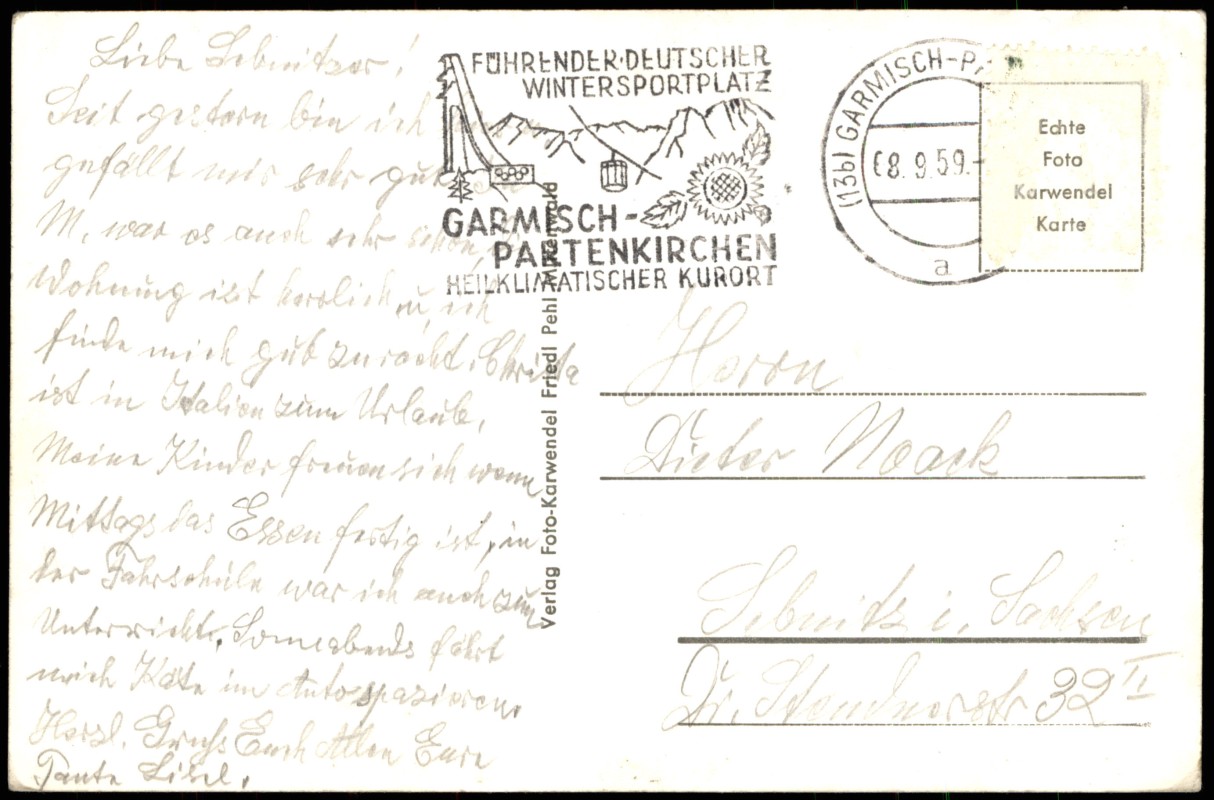 Liebe Sebnitzer!
Seit gestern bin ich
gefällt mir sehr gut
M, war es auch sehr schön,
Wohnung ist herrlich u, ich
finde mich gut zurecht. Christa
ist in Italien zum Urlaub,
Meine Kinder freuen sich wenn
Mittags das Essen fertig ist, in
der Fahrschule war ich auch zum
Unterricht. Sonnabends fährt
mich Käte im Auto spazieren,
Herzl. Gruß Euch Allen Eure
Tante Lisel.
FÜHRENDER·DEUTSCHER
WINTERSPORTPLATZ
GARMISCH-
PARTENKIRCHEN
HEILKLIMATISCHER KURORT
(13b) GARMISCH-PA
8.9.59.-
a
Echte
Foto
Karwendel
Karte
Verlag Foto-Karwendel Friedl Pehl Mittenwald
Herrn
Dieter Noack
Sebnitz i, Sachsen
32 II